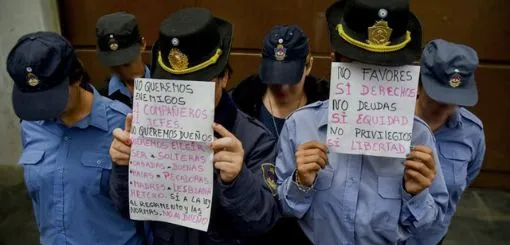 NO QUEREMOS
ENEMIGOS
SI COMPAÑEROS
Y JEFES.
NO QUEREMOS PADRES
QUEREMOS ELEGIR
SER ★ SOLTERAS
CASADAS ★ VIUDAS
MAJAS ★ PECADORAS
★ MADRES ★ LESBIANAS
HETERO. SI A LA LEY
AL REGLAMENTO y LAS
NORMAS. NO AL DEDO
NO FAVORES
SÍ DERECHOS
NO DEUDAS
SÍ EQUIDAD
NO PRIVILEGIOS
SÍ LIBERTAD